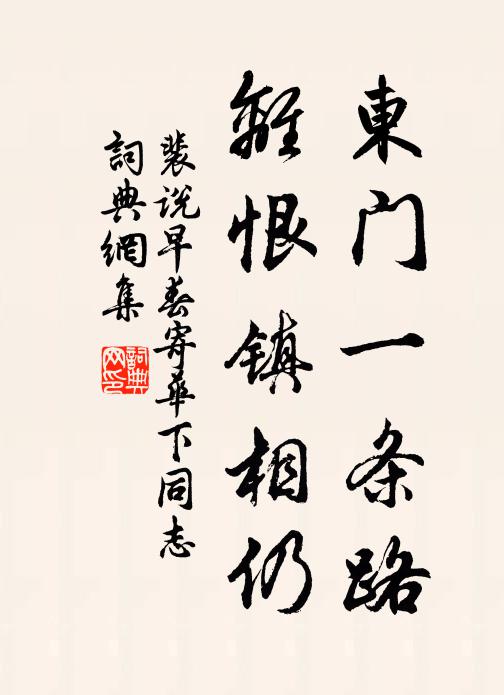 東门一条路
離恨镇相仍
裴说早春寄華下同志
詞典網集
詞典网印